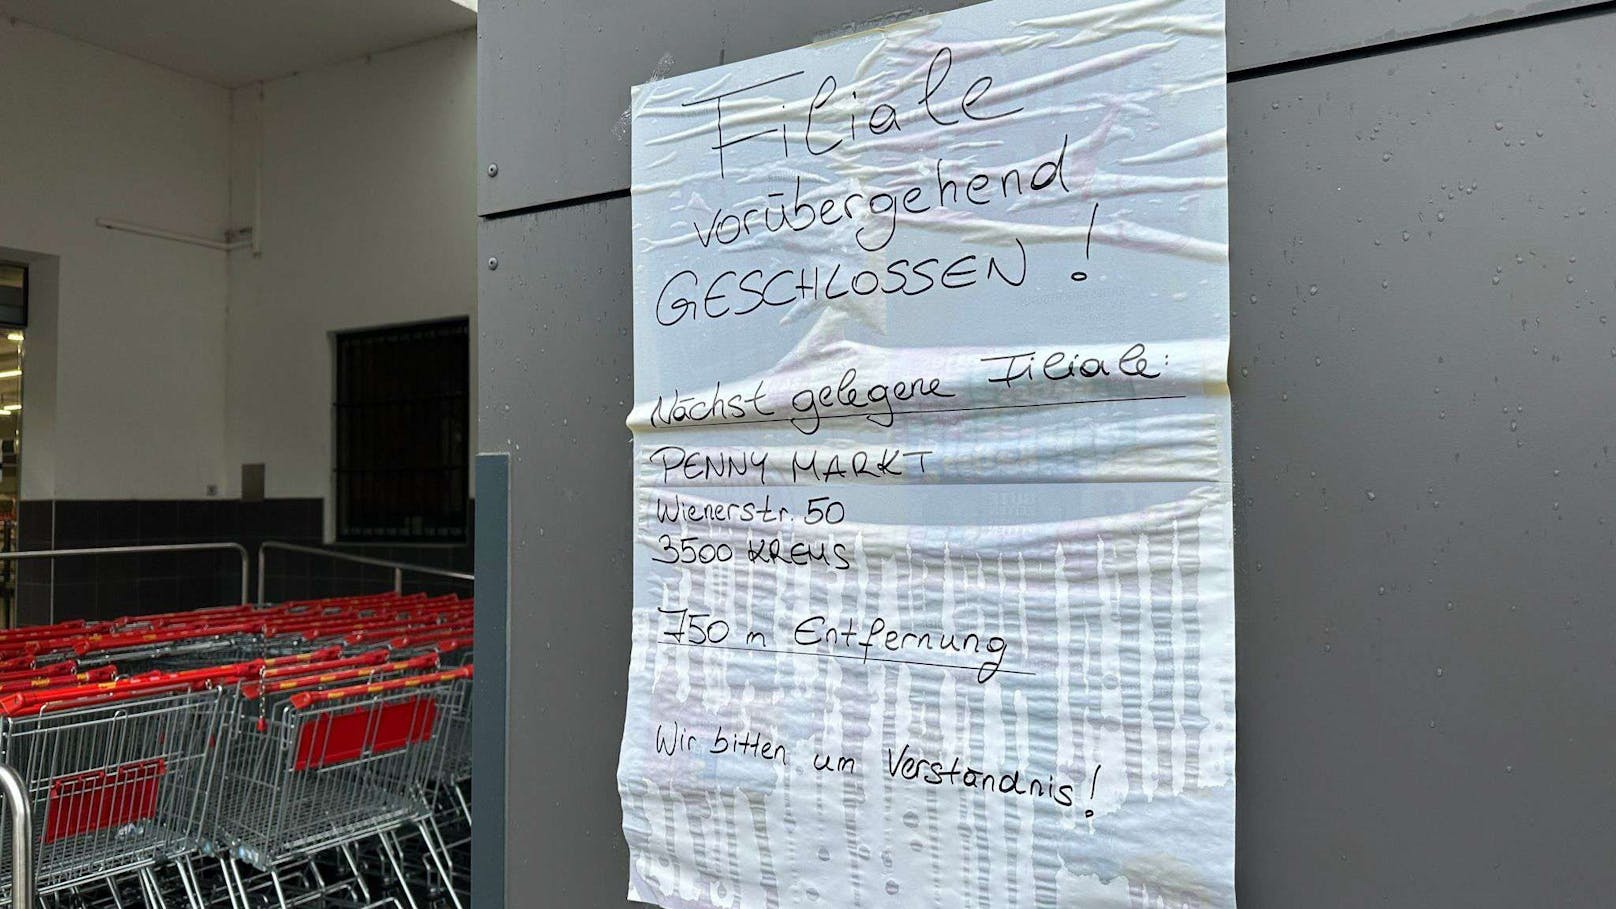 Filiale
vorübergehend
GESCHLOSSEN!
Nächst gelegene Filiale:
PENNY MARKT
Wienerstr. 50
3500 KREMS
750 m Entfernung
Wir bitten um Verständnis!